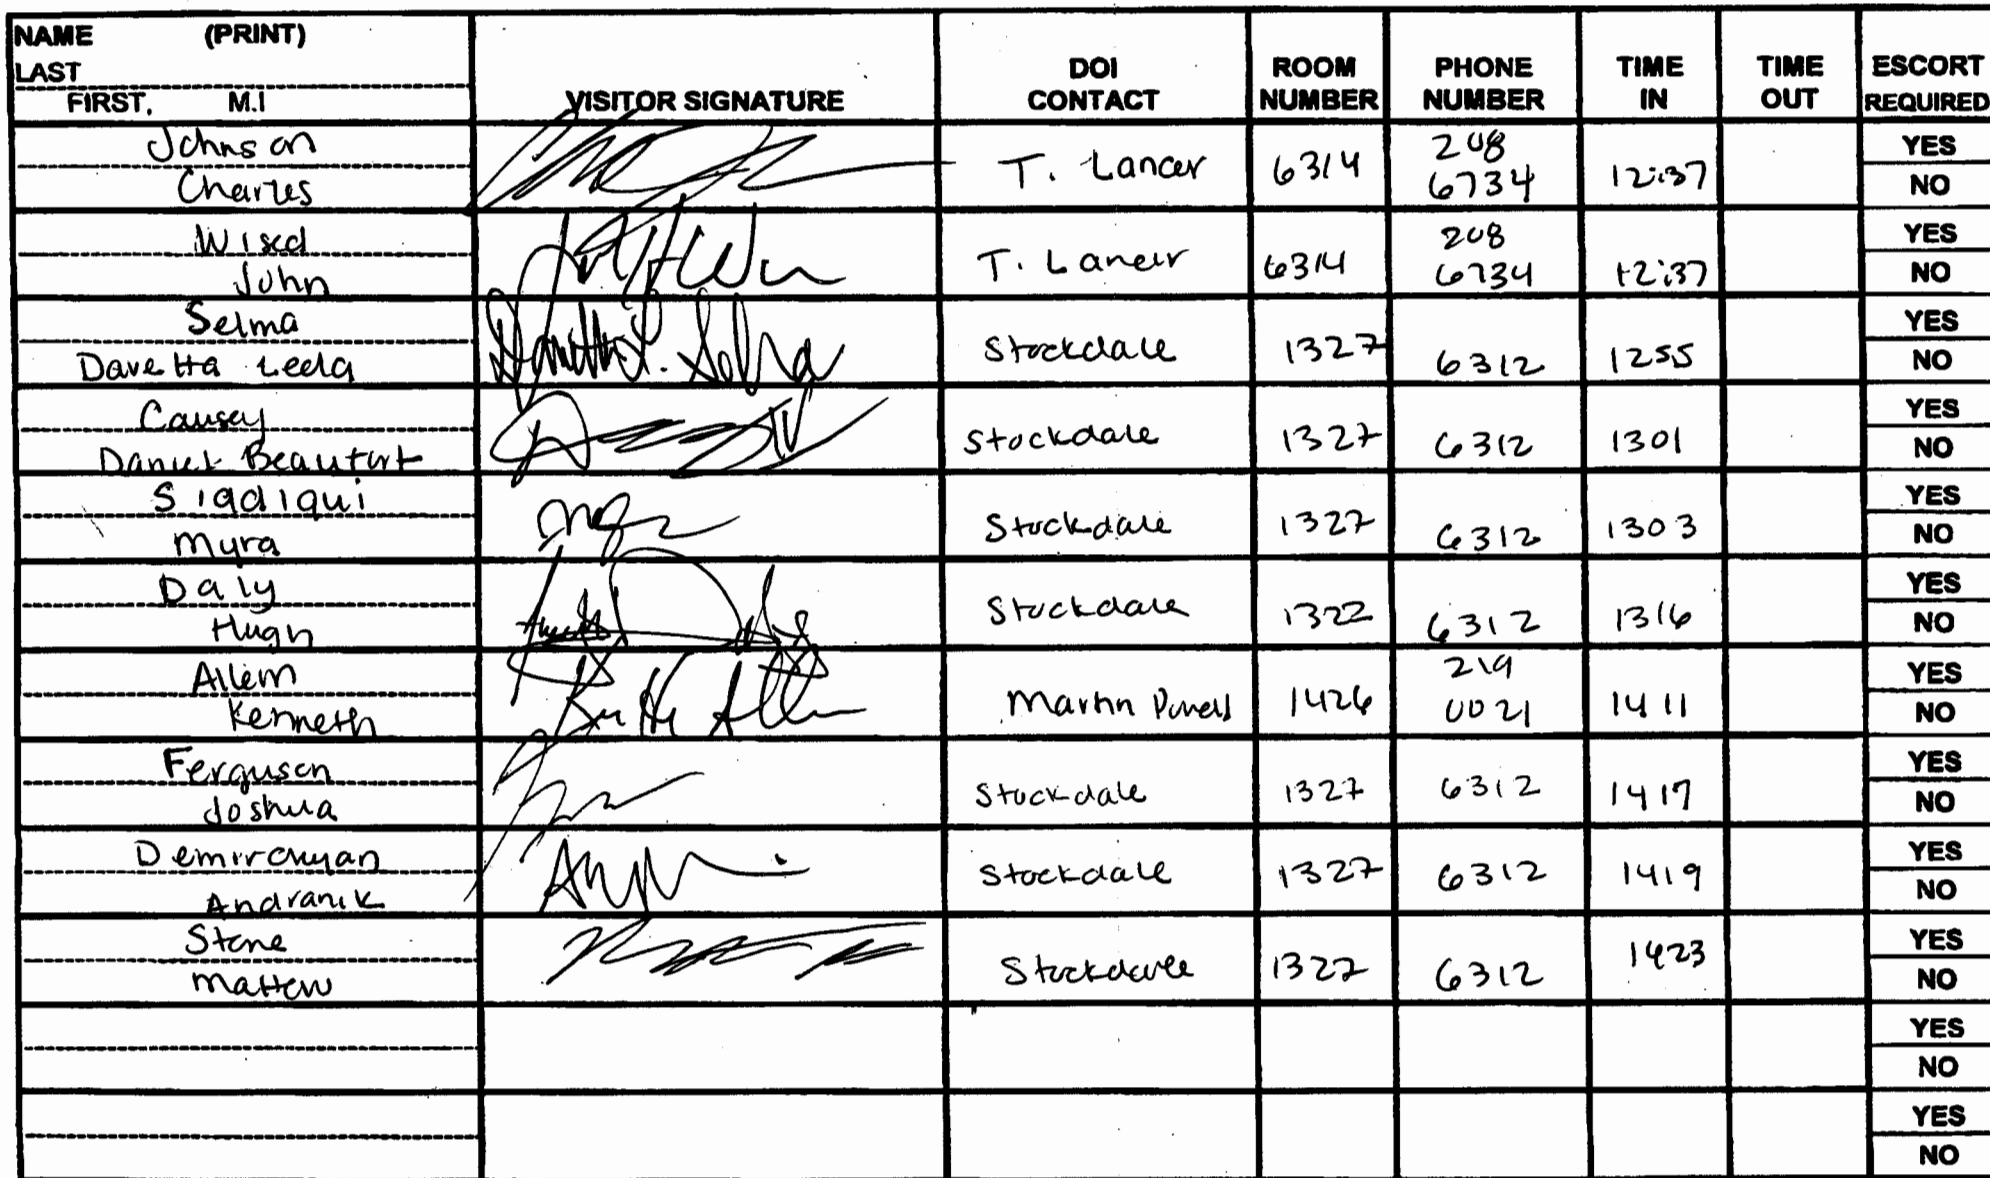 NAME (PRINT)
LAST
FIRST, M.I
VISITOR SIGNATURE
DOI CONTACT
ROOM NUMBER
PHONE NUMBER
TIME IN
TIME OUT
ESCORT REQUIRED
Johnson
Charles
T. Lancer 6314 208 6734 12:37 YES NO
Wised
John
T. Laneir 6314 208 6734 12:37 YES NO
Selma
Davetta Leeda
Stockdale 1327 6312 1255 YES NO
Causey
Daniel Beaufort
Stockdale 1327 6312 1301 YES NO
Siddiqui
Myra
Stockdale 1327 6312 1303 YES NO
Daly
Hugh
Stockdale 1322 6312 1316 YES NO
Allem
Kenneth
Martin Powell 1426 219 0021 1411 YES NO
Ferguson
Joshua
Stockdale 1327 6312 1417 YES NO
Demirchyan
Andranik
Stockdale 1327 6312 1419 YES NO
Stone
Mattew
Stockdale 1327 6312 1423 YES NO
YES
NO
YES
NO